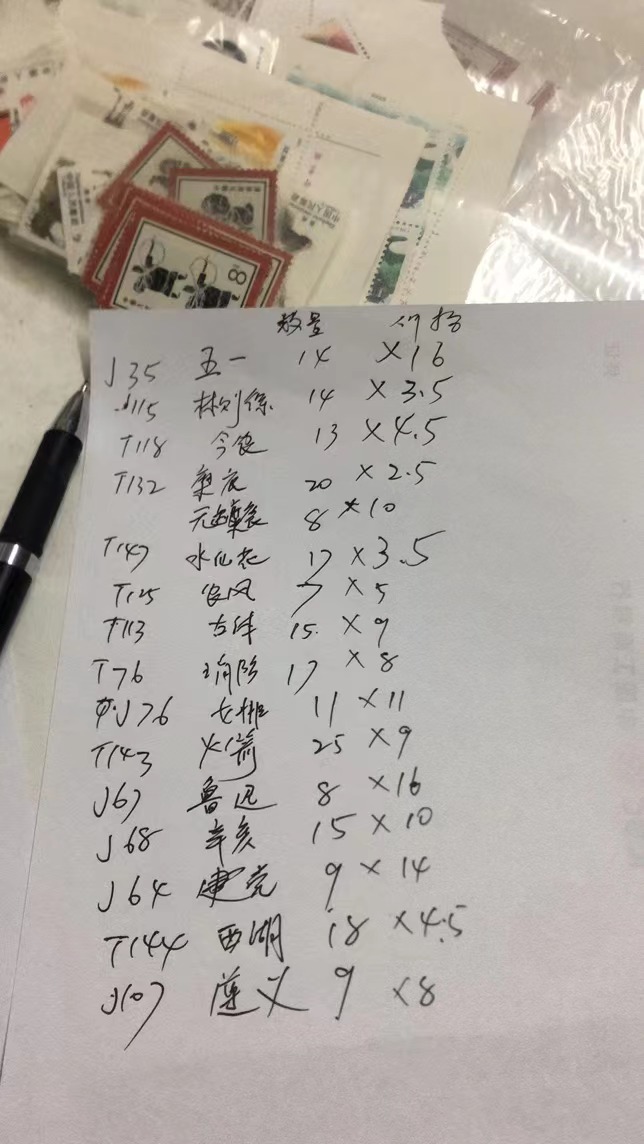 中国人民邮政
8
数量 价格
J35 五一 14 ×16
J115 林则徐 14 ×3.5
T118 今夜 13 ×4.5
T132 麋鹿 20 ×2.5
无齿麋鹿 8 ×10
T147 水仙花 17 ×3.5
T125 风 7 ×5
T113 古体 15 ×9
T76 消防 17 ×8
J76 女排 11 ×11
T143 火箭 25 ×9
J67 鲁迅 8 ×16
J68 辛亥 15 ×10
J64 建党 9 ×14
T144 西湖 18 ×4.5
J107 遵义 9 ×8